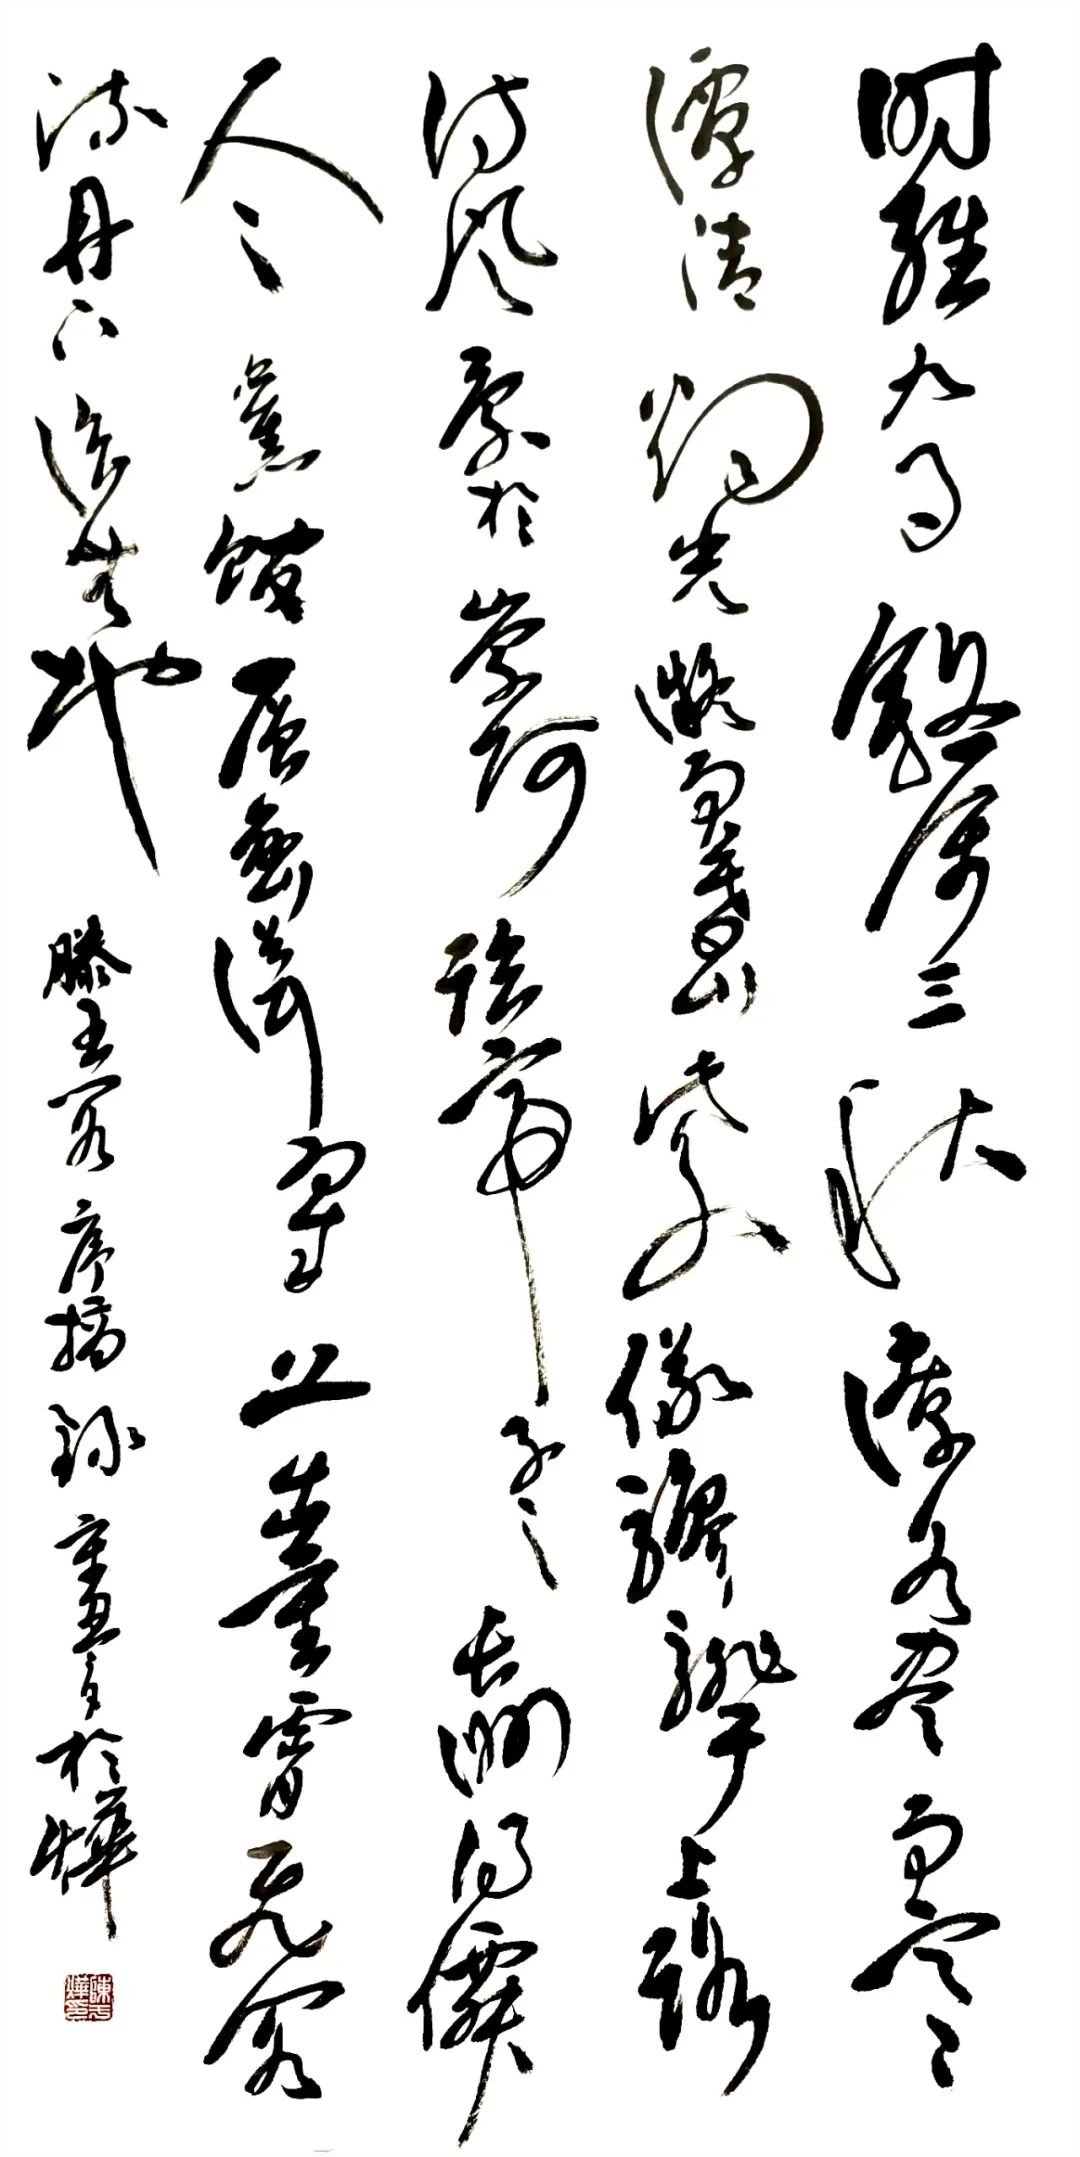 时維九月序属三秋潦水尽而寒
潭清烟光凝而暮山紫儼驂騑于上路
访风景於崇阿临帝子之长洲得僊
人之舊馆层峦耸翠上出重霄飛阁
流丹下临无地 滕王阁序摘録 辛丑 於燁